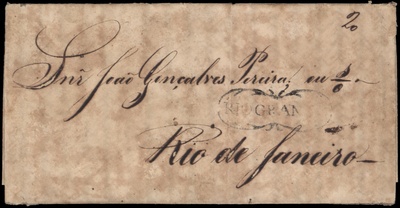 20
Snr João Gonçalves Pereira, ou
RIO GRAN
Rio de Janeiro